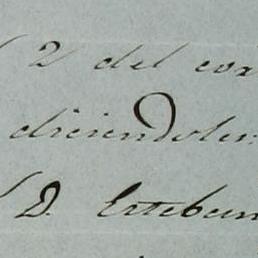 2 del cor
diciendoles
D. Esteban